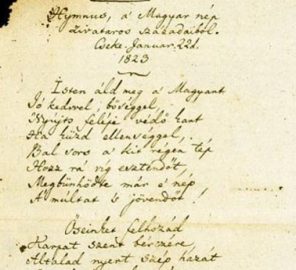 Hymnus, a' Magyar nép
zivataros századaiból.
Cseke. Januar. 22d.
1823
Isten áld meg a' Magyart
Jó kedvvel, bőséggel,
Nyújts feléje védő kart
Ha küzd ellenséggel,
Bal sors a' kit régen tép
Hozz rá víg esztendőt
Megbűnhődte már e' nép
A' múltat 's jövendőt!
Őseinket felhozád
Kárpát szent bérczére,
Általad nyert szép hazát